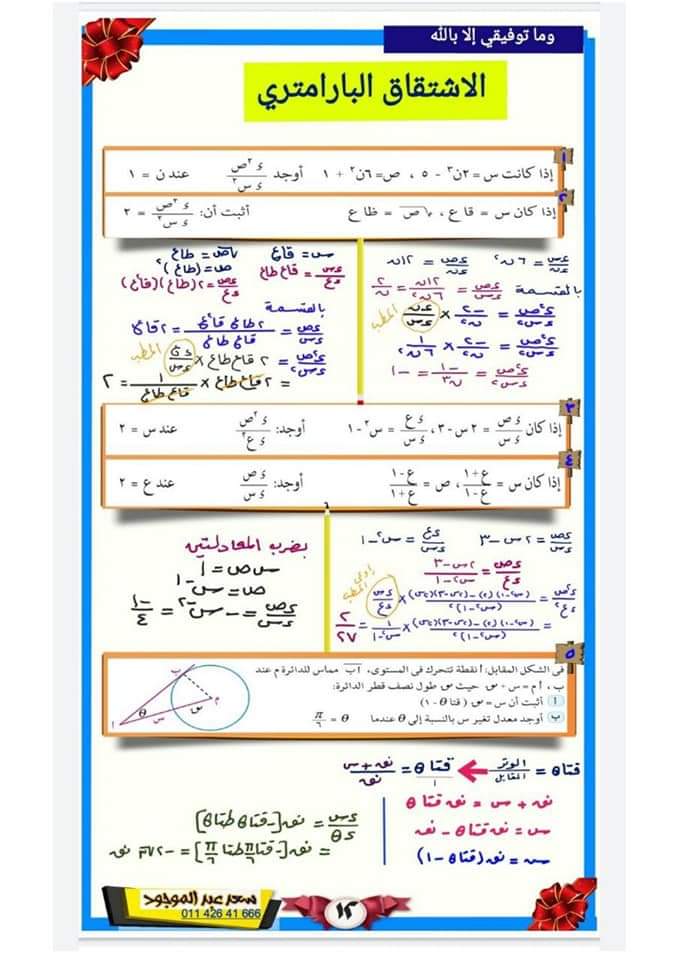 وما توفيقي إلا بالله
الاشتقاق البارامتري
١
إذا كانت س = ٢ن٣ - ٥ ، ص= ٦ن٢ + ١ أوجد ء٢ص/ء س٢ عند ن = ١
٢
إذا كان س = قا ع ، √ص = ظا ع أثبت أن: ء٢ص/ء س٢ = ٢
ءس/ءن = ٦ن٢ ءص/ءن = ١٢ن
بالقسمة ءص/ءس = ١٢ن/٦ن٢ = ٢/ن
ء٢ص/ءس٢ = -٢/ن٢ × ءن/ءس
ء٢ص/ءس٢ = -٢/ن٢ × ١/٦ن٢
ء٢ص/ءس٢ = -١/٣ن = -١
س = قاع √ص = طاع
ص = (طاع)٢
ءس/ءع = قاع طاع ءص/ءع = ٢(طاع)(قا٢ع)
بالقسمة
ءص/ءس = ٢طاع قا٢ع/قاع طاع = ٢قاع
ء٢ص/ءس٢ = ٢ قاع طاع × ءع/ءس
= ٢ قاع طاع × ١/قاع طاع = ٢
٣
إذا كان ء ص/ء س = ٢ س - ٣ ، ء ع/ء س = س٢ - ١ أوجد: ء٢ص/ء ع٢ عند س = ٢
٤
إذا كان س = ع+١/ع-١ ، ص = ع-١/ع+١ أوجد: ء ص/ء س عند ع = ٢
ءص/ءس = ٢س - ٣ ءع/ءس = س٢ - ١
ءص/ءع = ٢س - ٣/س٢ - ١
ء٢ص/ءع٢ = (س٢-١)(٢)-(٢س-٣)(٢س)/(س٢-١)٢ × ءس/ءع
= (س٢-١)(٢)-(٢س-٣)(٢س)/(س٢-١)٢ × ١/س٢-١ = ٢/٢٧
بضرب المعادلتين
س ص = ١
ص = س-١
ءص/ءس = - س-٢ = -١/٤
٥
فى الشكل المقابل: أ نقطة تتحرك فى المستوى، أب مماس للدائرة م عند
ب ، أ م = س + نق حيث نق طول نصف قطر الدائرة:
أ أثبت أن س = نق ( قتا θ - ١)
ب أوجد معدل تغير س بالنسبة إلى θ عندما θ = π/٦
ب
م
نق
θ
س
أ
قتا θ = الوتر/المقابل قتا θ/١ = نق + س/نق
نق + س = نق قتا θ
س = نق قتا θ - نق
س = نق (قتا θ - ١)
ءس/ءθ = نق [- قتا θ طتا θ]
= نق [- قتا π/٦ طتا π/٦] = -٢√٣ نق
سعد عبد الموجود
011 426 41 666
١٢